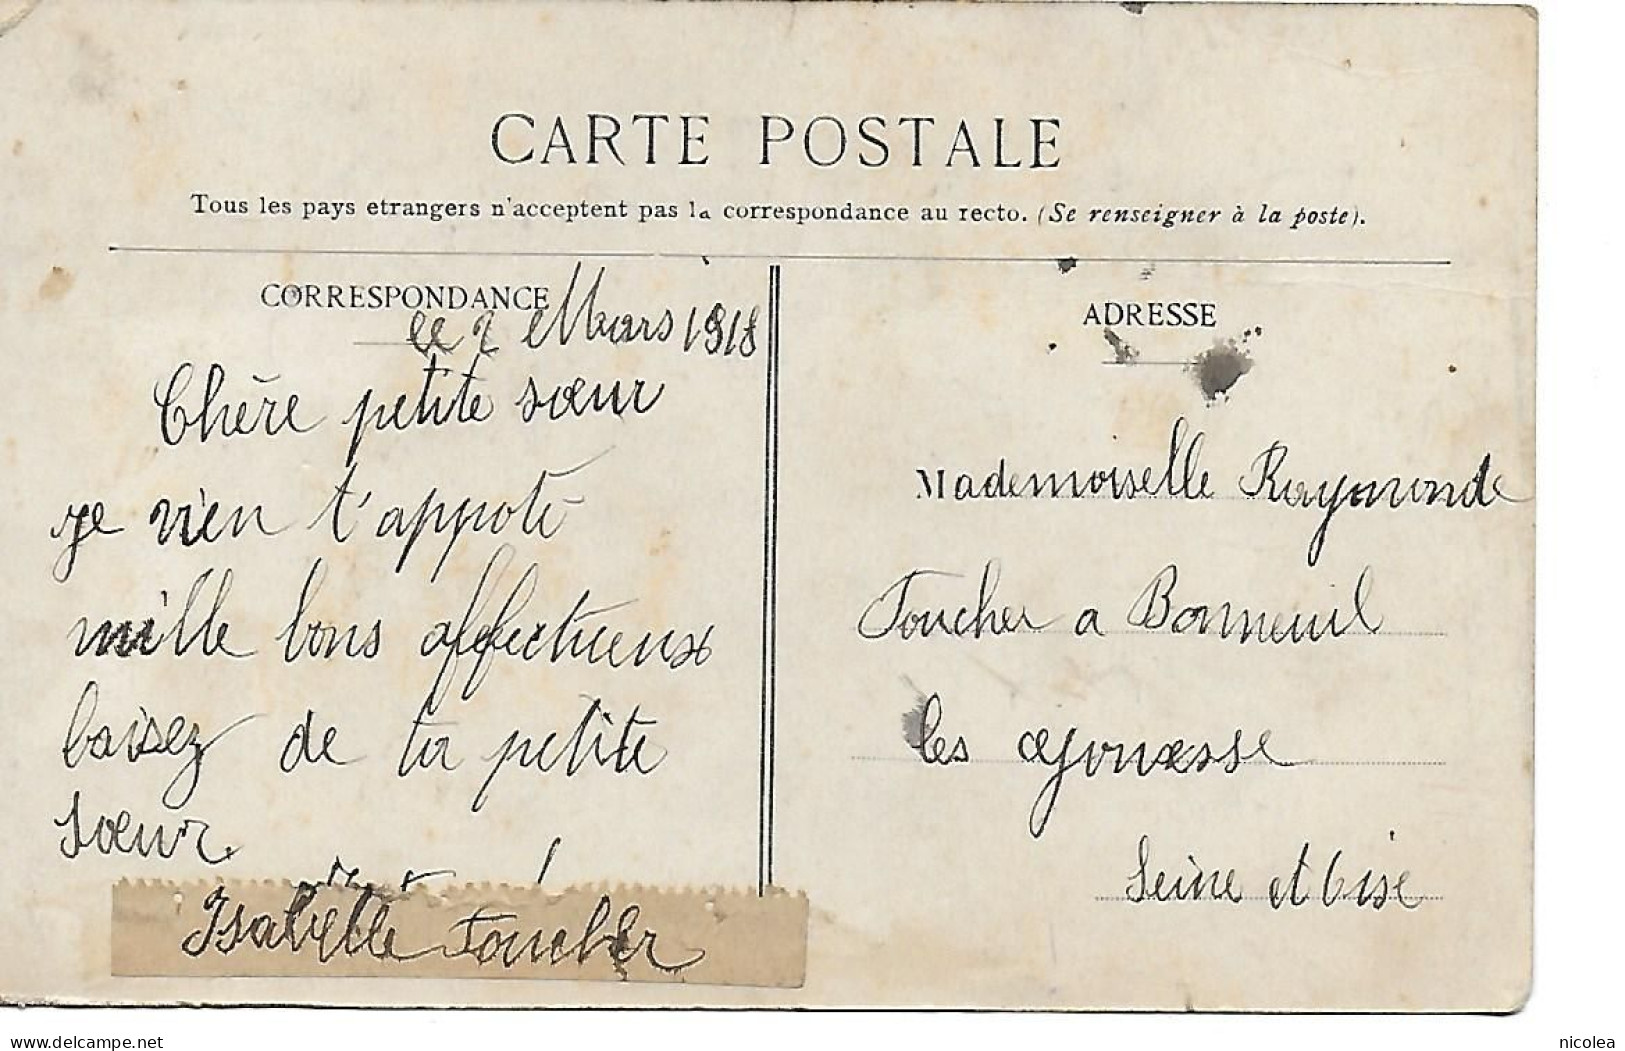 CARTE POSTALE
Tous les pays etrangers n'acceptent pas la correspondance au recto. (Se renseigner à la poste).
CORRESPONDANCE
le 2 Mars 1918
Chère petite sœur
je vien t'appoté
mille bons affectueux
baisez de ta petite
sœur
Isabelle Foucher
ADRESSE
Mademoiselle Raymonde
Foucher a Bonneuil
les Gonesse
Seine et Oise
www.delcampe.net
nicolea